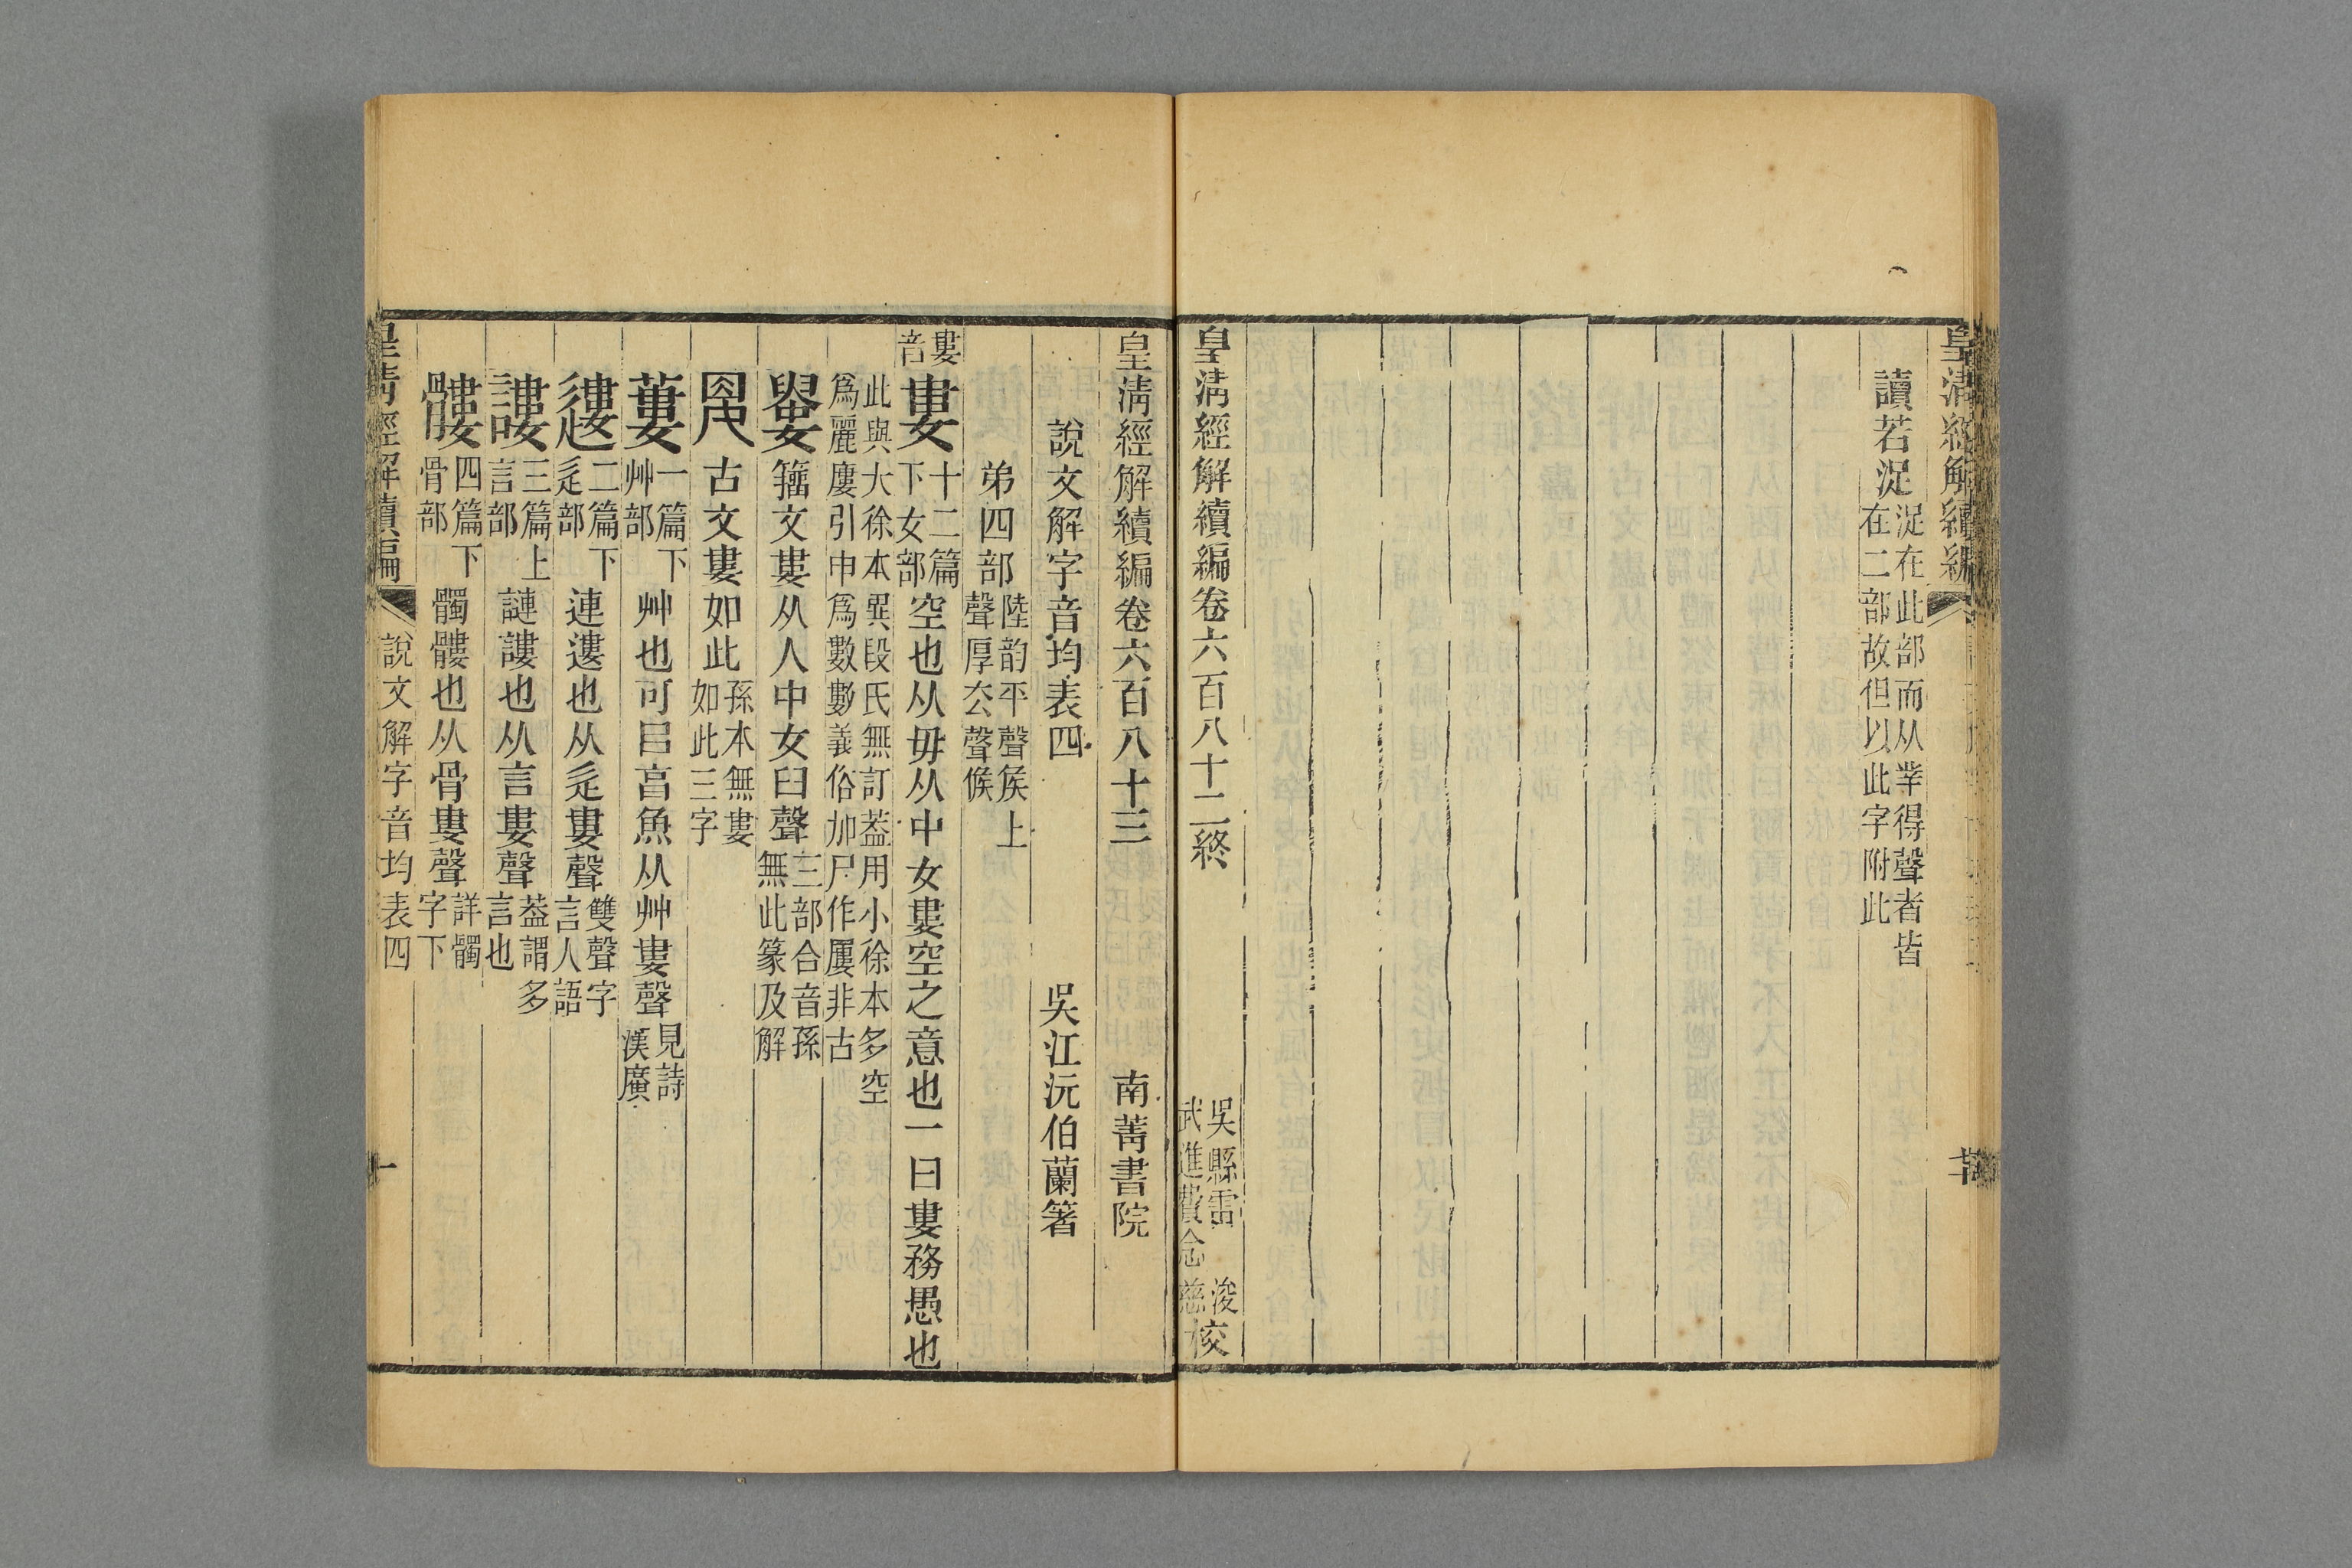 皇清經解續編
讀若浞浞在此部而从丵得聲者皆
在二部故但以此字附此
皇淸經解續編卷六百八十二終
吳縣雷浚
武進費念慈校
皇淸經解續編卷六百八十三 南菁書院
說文解字音均表四 吳江沅伯蘭箸
弟四部陸韵平聲侯上
聲厚去聲候
婁音
婁十二篇
下女部空也从毋从中女婁空之意也一曰婁務愚也
此與大徐本異段氏無訂葢用小徐本多空
爲麗廔引申爲數數義俗加尸作屢非古
籒文婁从人中女曰聲三部合音孫
無此篆及解
古文婁如此孫本無婁
如此三字
蔞一篇下
艸部艸也可㠯亯魚从艸婁聲見詩
漢廣
遱二篇下
辵部連遱也从辵婁聲雙聲字
言人語
謱三篇上
言部謰謱也从言婁聲葢謂多
言也
髏四篇下
骨部髑髏也从骨婁聲詳髑
字下
皇淸經解續編 說文解字音均表四 一